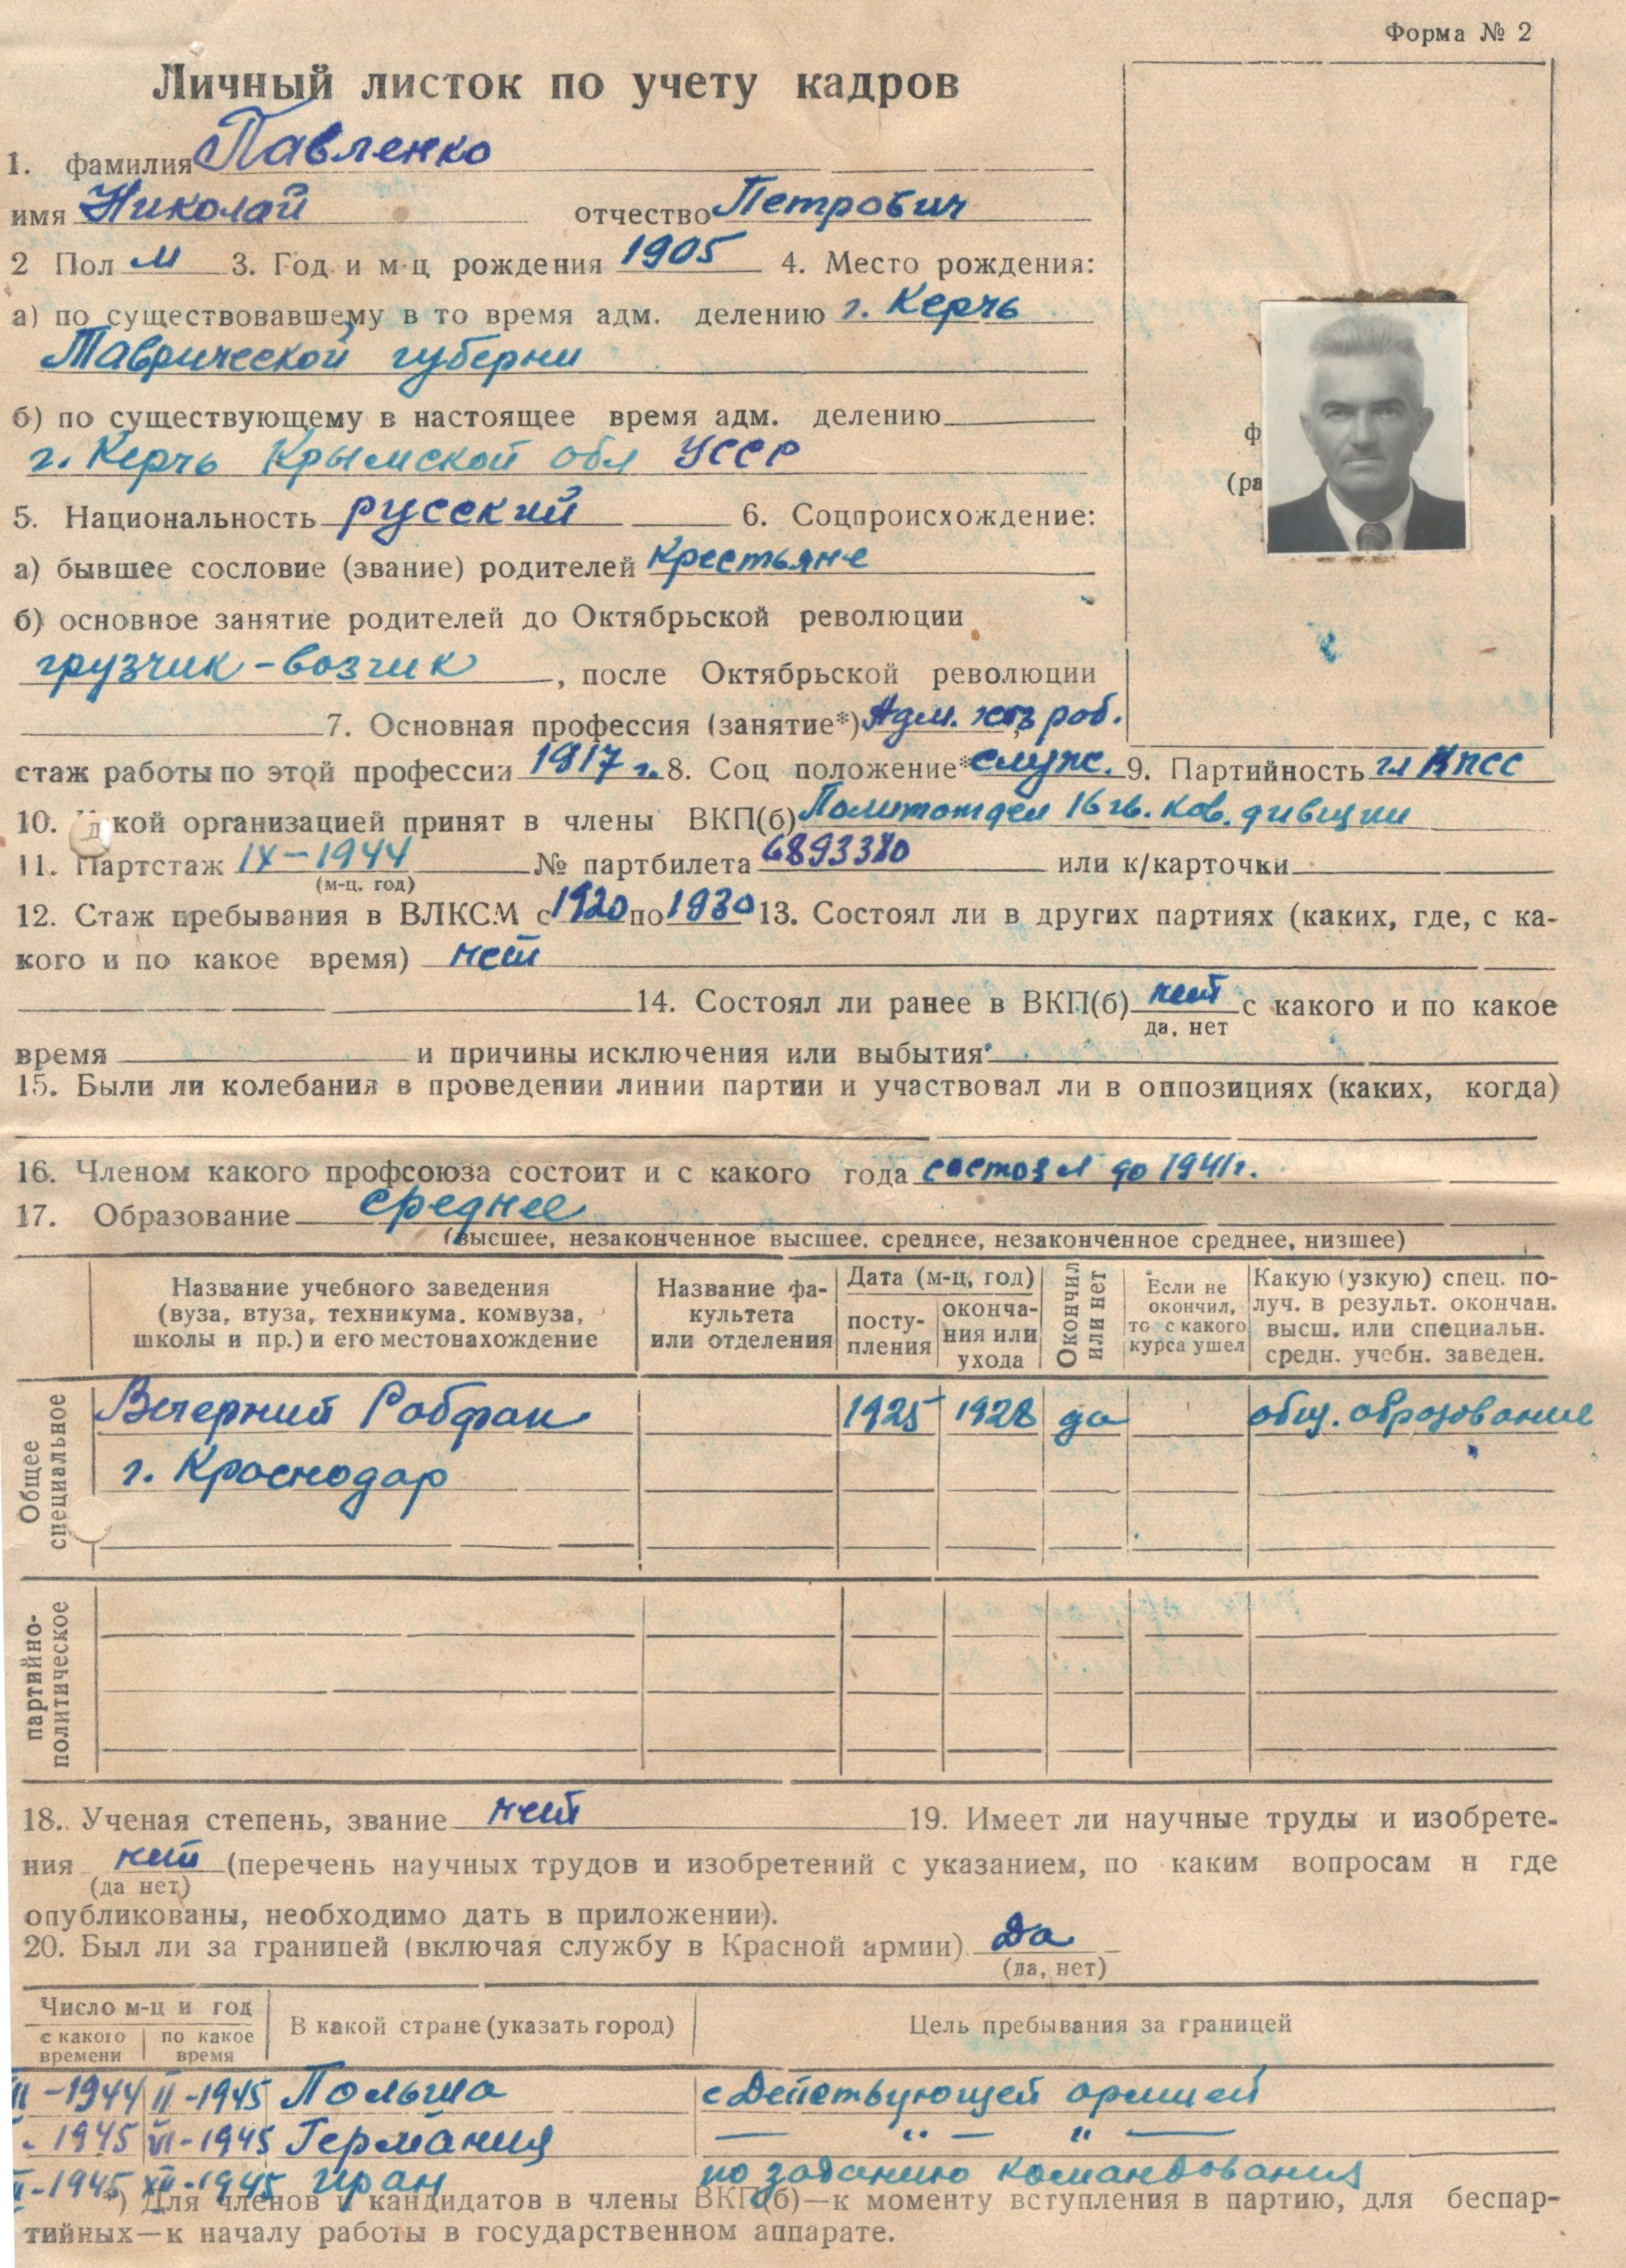 Форма № 2
Личный листок по учету кадров
1. фамилия Павленко
имя Николай отчество Петрович
2 Пол М 3. Год и м-ц рождения 1905 4. Место рождения:
а) по существовавшему в то время адм. делению г. Керчь
Таврической губерни
б) по существующему в настоящее время адм. делению
г. Керчь Крымской обл УССР
5. Национальность русский 6. Соцпроисхождение:
а) бывшее сословие (звание) родителей Крестьяне
б) основное занятие родителей до Октябрьской революции
грузчик-возчик, после Октябрьской революции
7. Основная профессия (занятие*) Адм. хоз роб.
стаж работы по этой профессии 1917 г. 8. Соц положение* служ. 9. Партийность чл КПСС
10. кой организацией принят в члены ВКП(б) Политотдел 16 гв. кав. дивизии
11. Партстаж IX-1944 № партбилета 6893380 или к/карточки
(м-ц. год)
12. Стаж пребывания в ВЛКСМ с 1920 по 1930 13. Состоял ли в других партиях (каких, где, с ка-
кого и по какое время) нет
14. Состоял ли ранее в ВКП(б) нет с какого и по какое
да, нет
время и причины исключения или выбытия
15. Были ли колебания в проведении линии партии и участвовал ли в оппозициях (каких, когда)
16. Членом какого профсоюза состоит и с какого года состоял до 1941 г.
17. Образование среднее
(высшее, незаконченное высшее, среднее, незаконченное среднее, низшее)
Название учебного заведения (вуза, втуза, техникума. комвуза, школы и пр.) и его местонахождение
Название фа-культета или отделения
Дата (м-ц, год)
посту-пления
оконча-ния или ухода
Окончил или нет
Если не окончил, то с какого курса ушел
Какую (узкую) спец. по-луч. в результ. окончан. высш. или специальн. средн. учебн. заведен.
Общее специальное
Вечерний Рабфак 1925 1928 да общ. образование
г. Краснодар
партийно-политическое
18. Ученая степень, звание нет 19. Имеет ли научные труды и изобрете-
ния нет (перечень научных трудов и изобретений с указанием, по каким вопросам и где
(да нет)
опубликованы, необходимо дать в приложении).
20. Был ли за границей (включая службу в Красной армии) Да
(да, нет)
Число м-ц и год
с какого времени
по какое время
В какой стране (указать город)
Цель пребывания за границей
-1944 II-1945 Польша с Действующей армией
1945 VI-1945 Германия — " — " —
-1945 XII-1945 Иран по заданию командования
*) Для членов и кандидатов в члены ВКП(б)—к моменту вступления в партию, для беспар-
тийных—к началу работы в государственном аппарате.